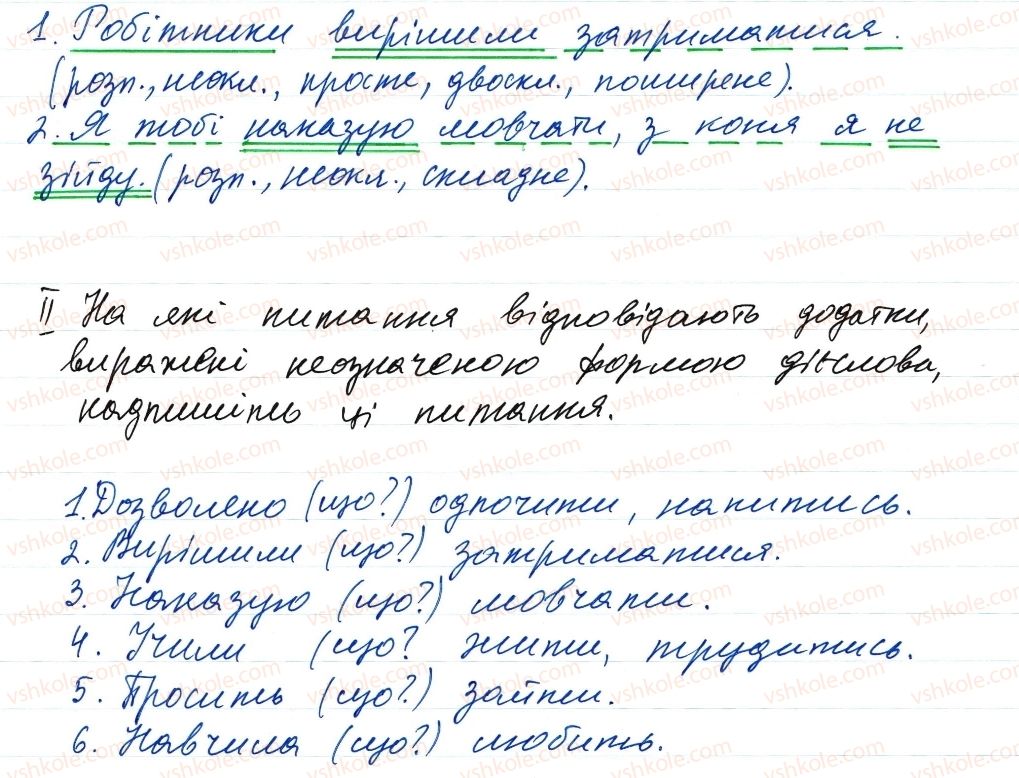 1. Робітники вирішили затриматися.
(розп., неокл., просте, двоскл., поширене).
2. Я тобі наказую мовчати, з коня я не
зійду. (розп., неокл., складне).
II На які питання відповідають додатки,
виражені неозначеною формою дієслова,
надпишіть ці питання.
1. Дозволено (що?) одпочити, напитись.
2. Вирішили (що?) затриматися.
3. Наказую (що?) мовчати.
4. Учили (що? жити, трудитись.
5. Просить (що?) зайти.
6. Навчила (що?) любить.